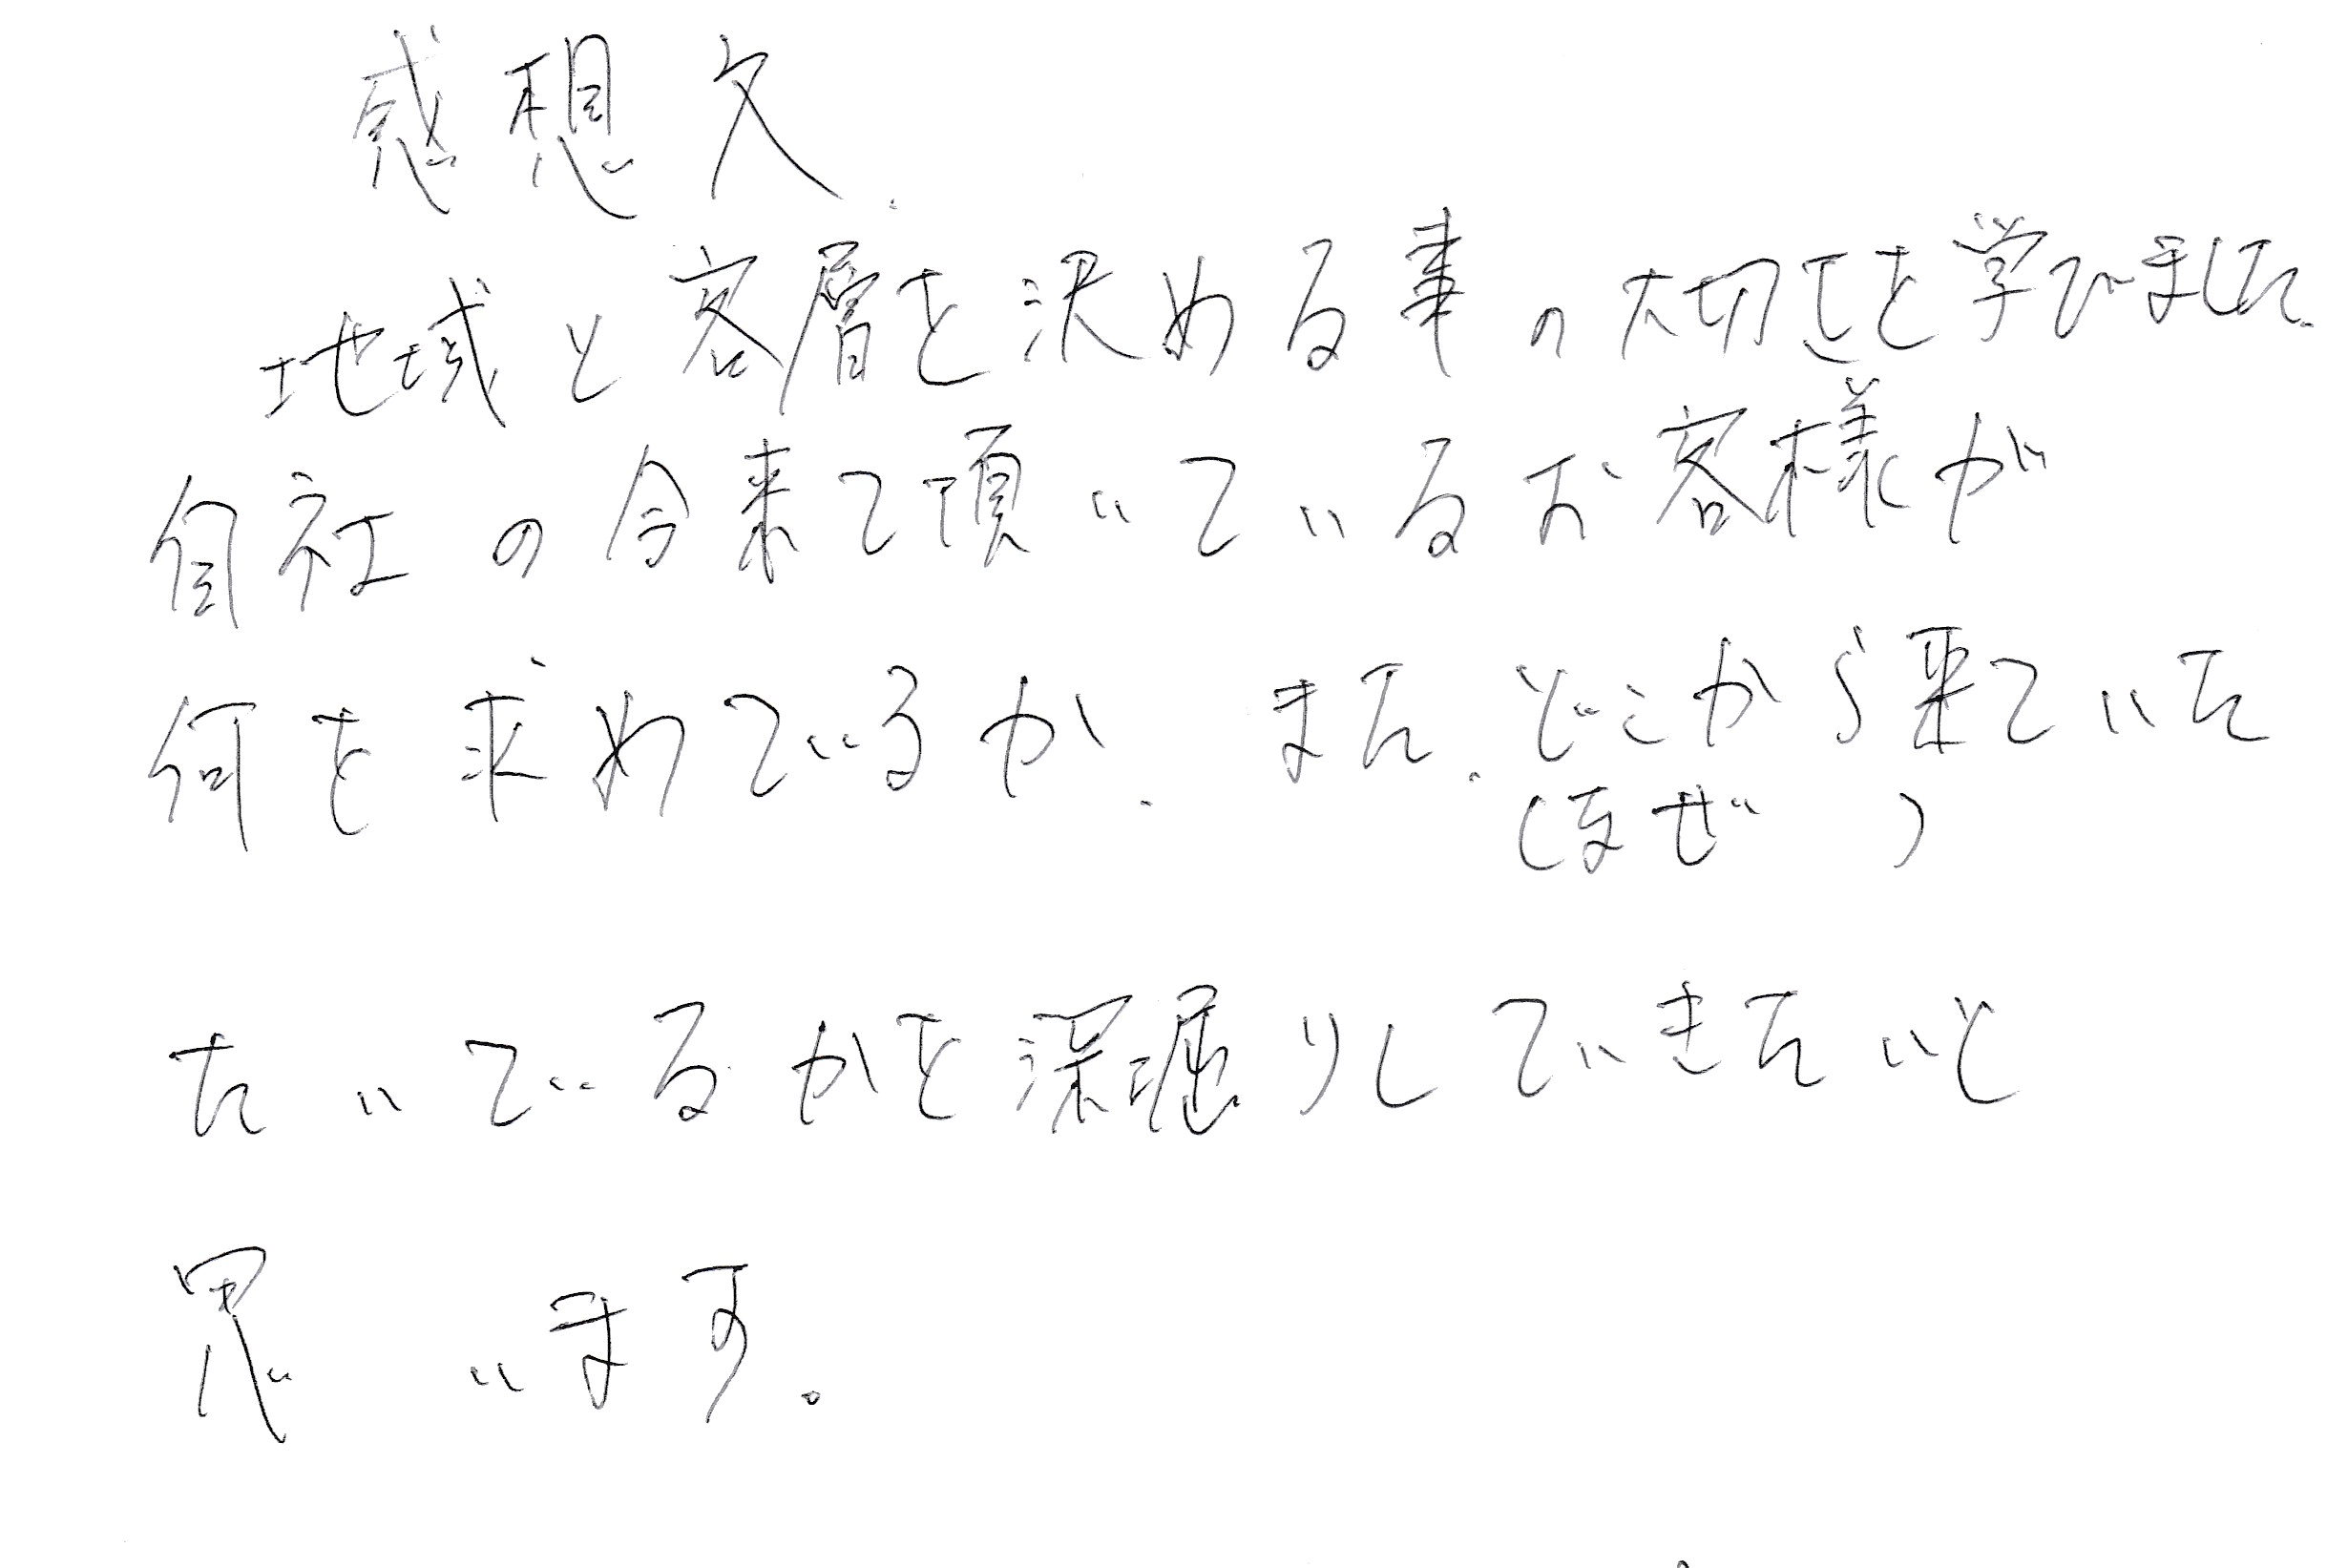 感想文
地域と客層を決める事の大切さを学びました.
自社の今来て頂いているお客様が
何を求めているか、また、どこから来ていた
(なぜ )
たいているかを深堀りしていきたいと
思います。